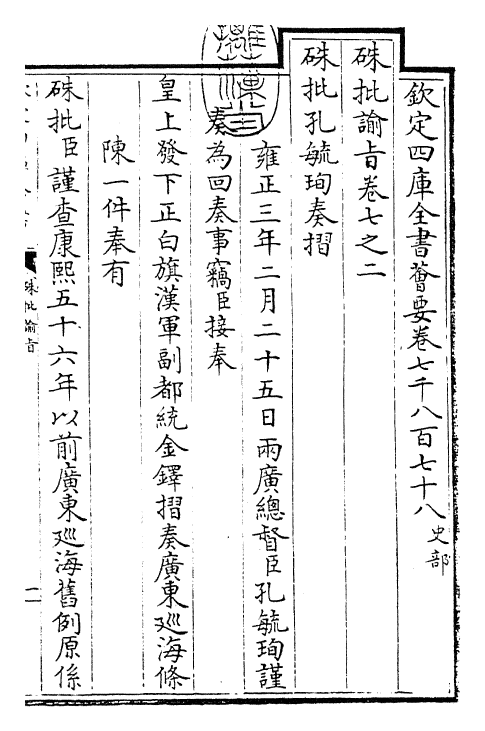 欽定四庫全書薈要卷七千八百七十八史部
硃批諭旨卷七之二
硃批孔毓珣奏摺
雍正三年二月二十五日兩廣總督臣孔毓珣謹
奏為回奏事竊臣接奉
皇上發下正白旗漢軍副都統金鐸摺奏廣東廵海條
陳一件奉有
硃批臣謹查康熙五十六年以前廣東廵海舊例原係
硃批諭旨
一